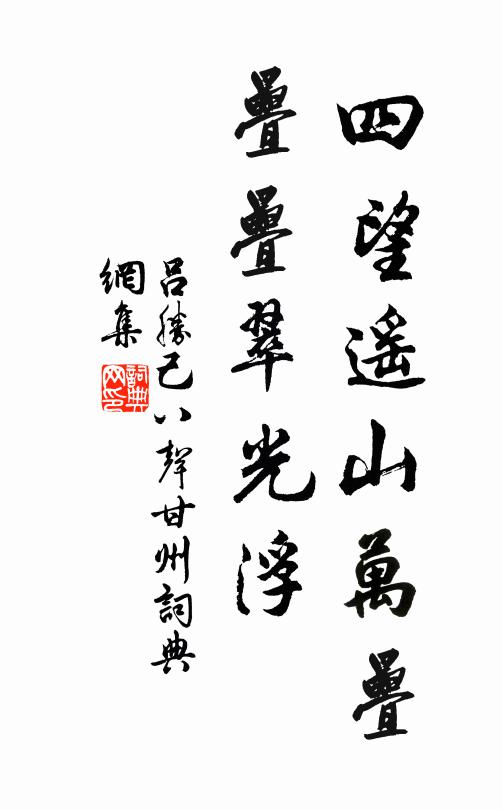 四望遥山萬疊
疊疊翠光浮
吕勝己八聲甘州詞典
網集
詞典
网印